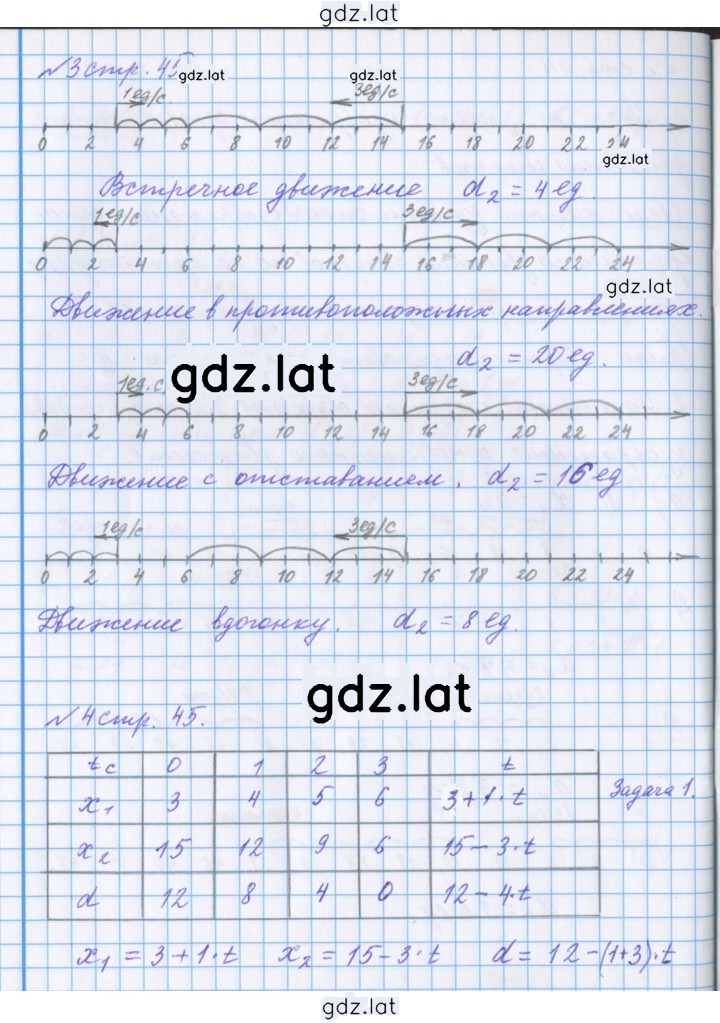 gdz.lat
№3 стр. 45
gdz.lat gdz.lat
1ед/с 3ед/с
0 2 4 6 8 10 12 14 16 18 20 22 24
gdz.lat
Встречное движение d₂ = 4 ед.
1ед/с 3ед/с
0 2 4 6 8 10 12 14 16 18 20 22 24
gdz.lat
Движение в противоположных направлениях.
d₂ = 20 ед.
gdz.lat
1ед.с 3ед/с
0 2 4 6 8 10 12 14 16 18 20 22 24
Движение с отставанием. d₂ = 16 ед
1ед/с 3ед/с
0 2 4 6 8 10 12 14 16 18 20 22 24
Движение вдогонку. d₂ = 8 ед.
gdz.lat
№4 стр. 45.
t c 0 1 2 3 t
x₁ 3 4 5 6 3+1·t Задача 1.
x₂ 15 12 9 6 15-3·t
d 12 8 4 0 12-4·t
x₁ = 3+1·t x₂ = 15-3·t d = 12-(1+3)·t
gdz.lat